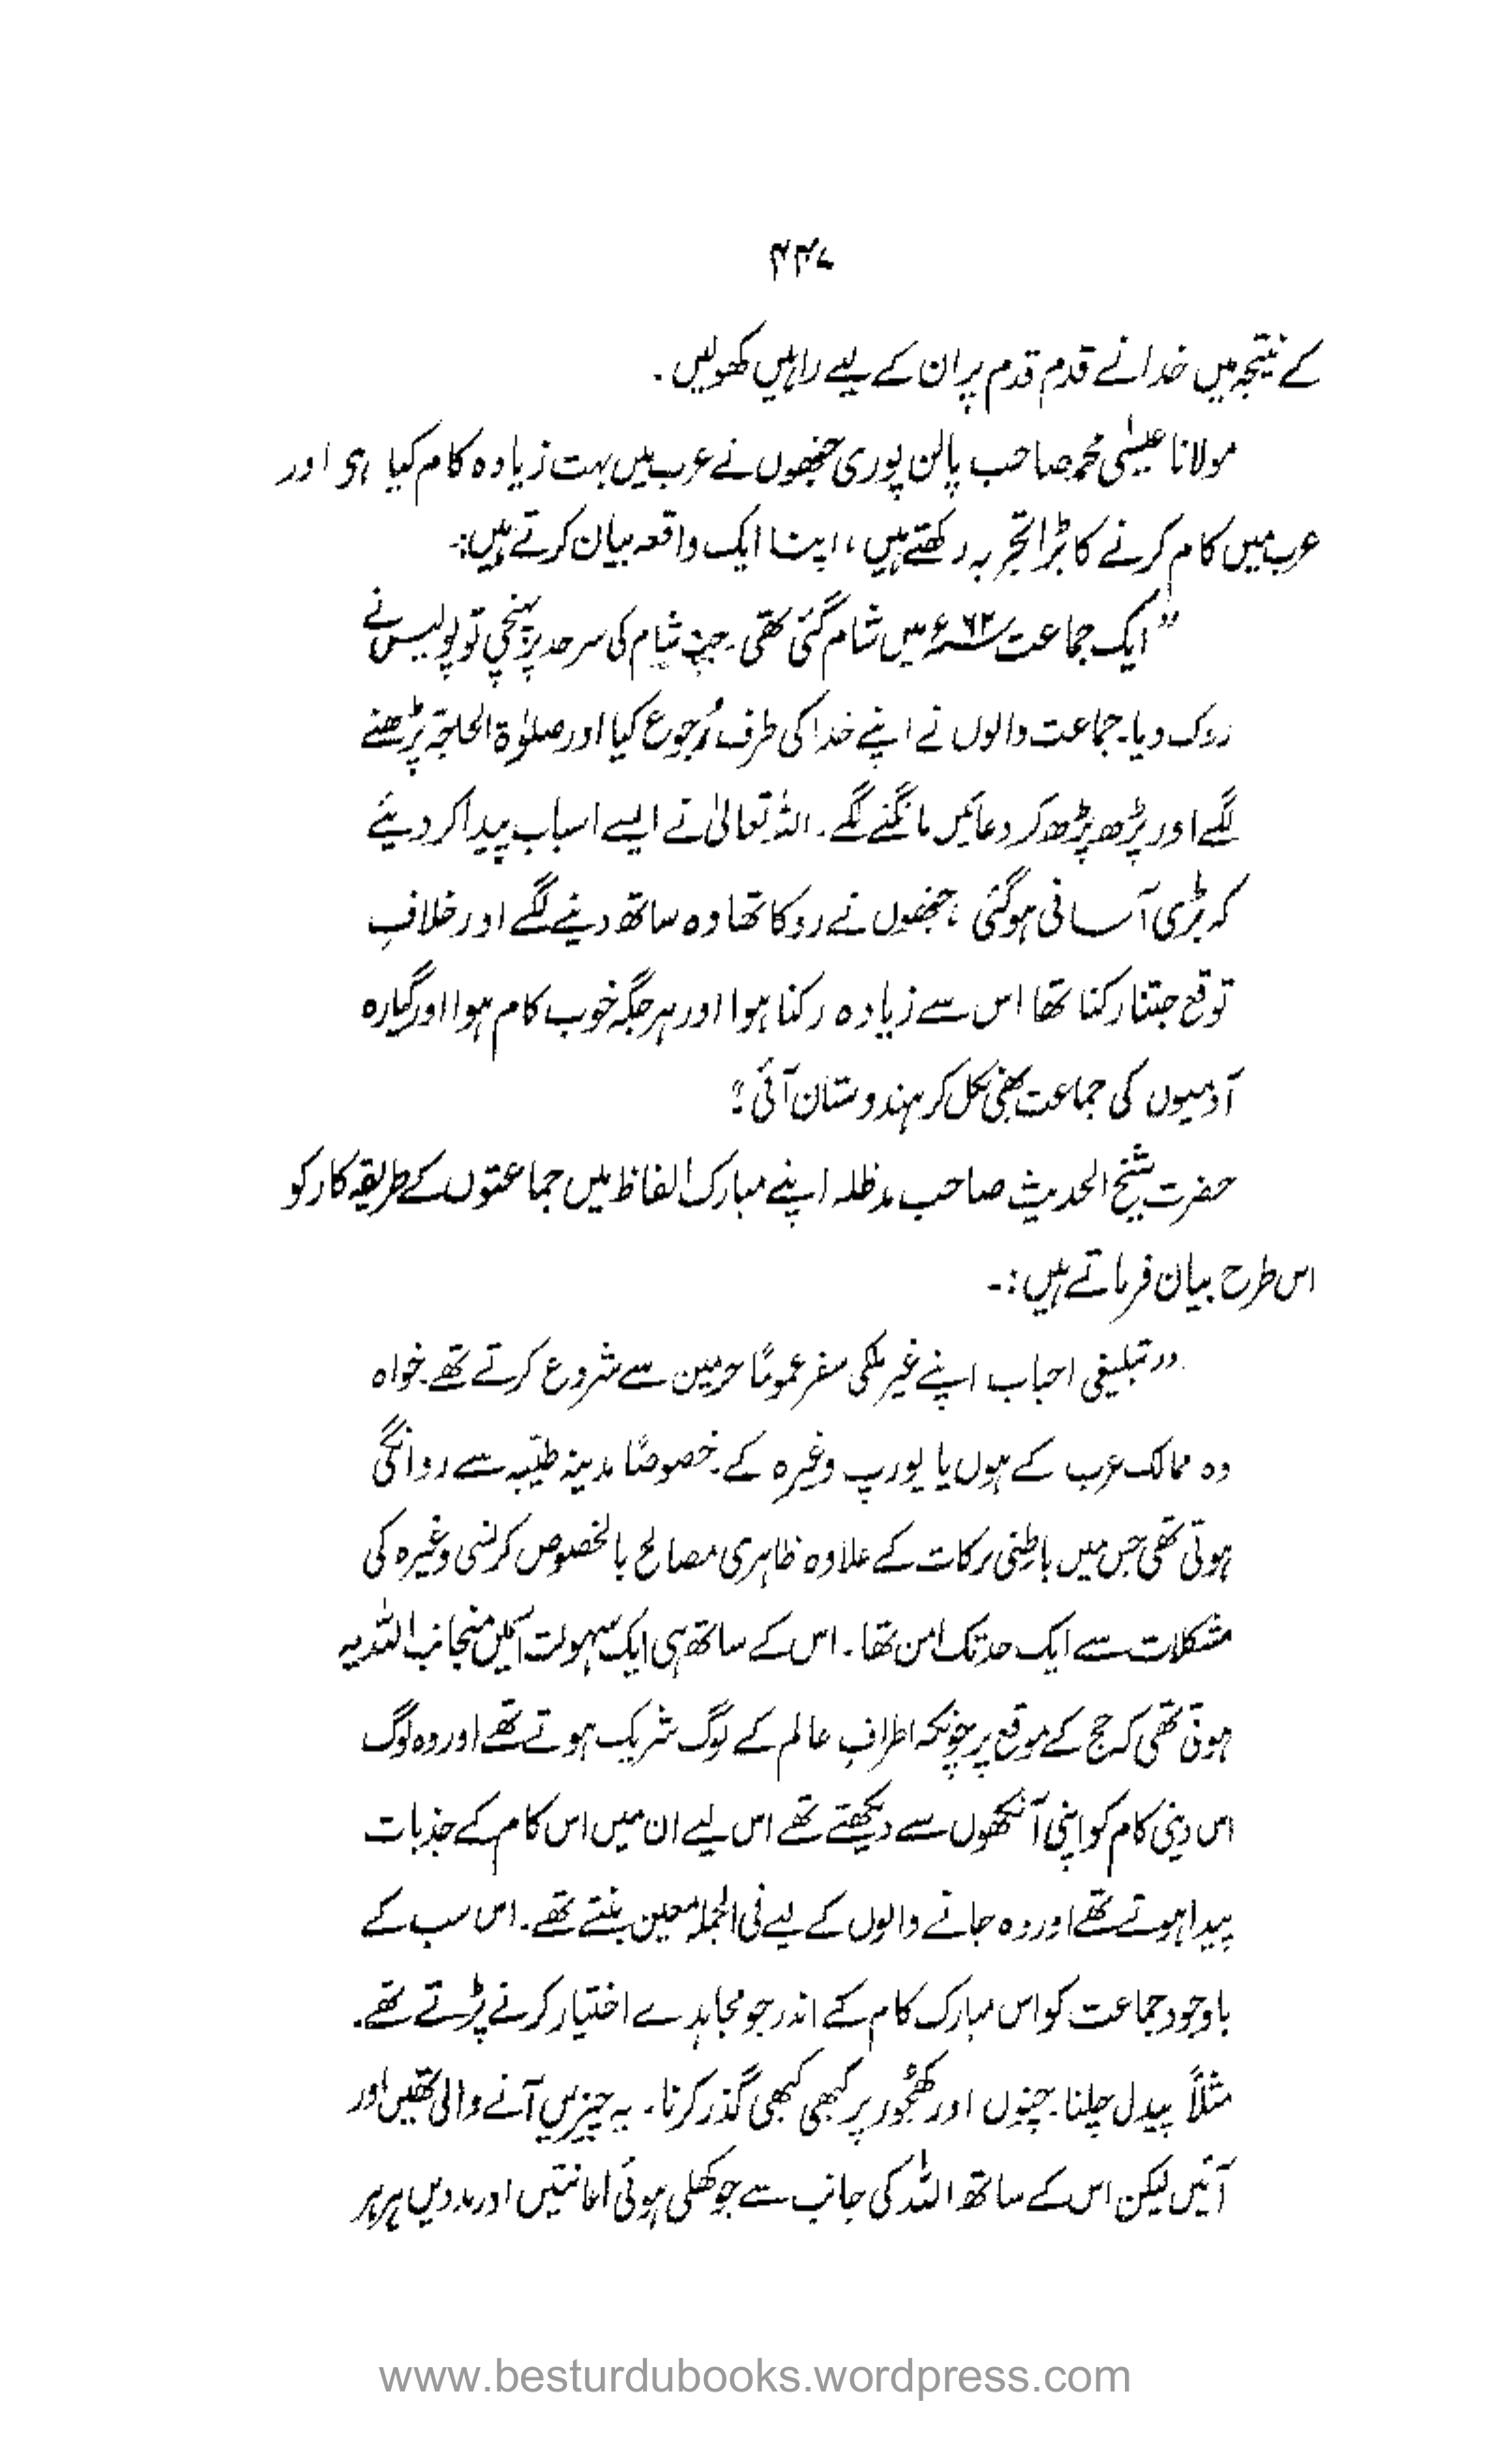 ۴۴۷
کے نتیجہ میں خدا نے قدم قدم پر ان کے لیے راہیں کھولیں۔
مولانا عیسیٰ محمد صاحب پالن پوری جنھوں نے عرب میں بہت زیادہ کام کیا ہی اور
عرب میں کام کرنے کا بڑا تجربہ رکھتے ہیں، اپنا ایک واقعہ بیان کرتے ہیں:-
"ایک جماعت ۶۲ء میں شام گئی تھی۔ جب شام کی سرحد پر پہنچی تو پولیس نے
روک دیا۔ جماعت والوں نے اپنے خدا کی طرف رُجوع کیا اور صلوٰۃ الحاجۃ پڑھنے
لگے اور پڑھ پڑھ کر دعائیں مانگنے لگے۔ اللہ تعالیٰ نے ایسے اسباب پیدا کر دیئے
کہ بڑی آسانی ہو گئی، جنھوں نے روکا تھا وہ ساتھ دینے لگے اور خلافِ
توقع جتنا رکنا تھا اس سے زیادہ رکنا ہوا اور ہر جگہ خوب کام ہوا اور گیارہ
آدمیوں کی جماعت بھی نکل کر ہندوستان آئی"
حضرت شیخ الحدیث صاحب مدظلہ اپنے مبارک الفاظ میں جماعتوں کے طریقہ کار کو
اس طرح بیان فرماتے ہیں:-
"تبلیغی احباب اپنے غیر ملکی سفر عموماً حرمین سے شروع کرتے تھے۔ خواہ
وہ ممالک عرب کے ہوں یا یورپ وغیرہ کے۔ خصوصاً مدینہ طیّبہ سے روانگی
ہوتی تھی جس میں باطنی برکات کے علاوہ ظاہری مصالح بالخصوص کرنسی وغیرہ کی
مشکلات سے ایک حد تک امن تھا۔ اس کے ساتھ ہی ایک سہولت اسمیں منجانب اللہ یہ
ہوتی تھی کہ حج کے موقع پر چونکہ اطرافِ عالم کے لوگ شریک ہوتے تھے اور وہ لوگ
اس دینی کام کو اپنی آنکھوں سے دیکھتے تھے اس لیے ان میں اس کام کے جذبات
پیدا ہوتے تھے اور وہ جانے والوں کے لیے فی الجملہ معین بنتے تھے۔ اس سب کے
باوجود جماعت کو اس مبارک کام کے اندر جو مجاہدے اختیار کرنے پڑتے تھے۔
مثلاً پیدل چلنا۔ چنوں اور کھجور پر کبھی کبھی گذر کرنا۔ یہ چیزیں آنے والی تھیں اور
آئیں لیکن اس کے ساتھ اللہ کی جانب سے جو کھلی ہوئی اعانتیں اور مددیں ہر ہر
www.besturdubooks.wordpress.com